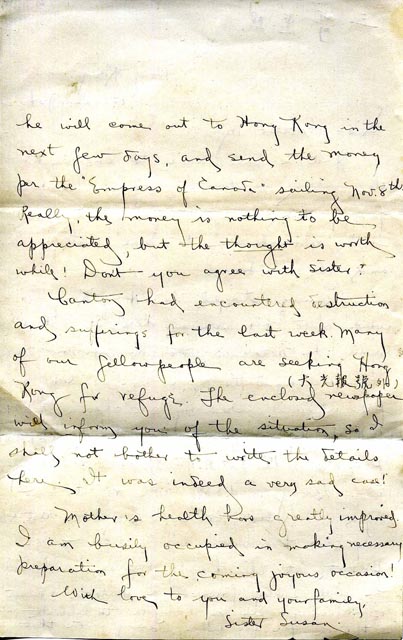 he will come out to Hong Kong in the
next few days, and send the money
per. the "Empress of Canada" sailing Nov. 8th
Really, the money is nothing to be
appreciated, but the thought is worth
while! Don't you agree with sister?
Canton had encountered destruction
and sufferings for the last week. Many
of our fellowpeople are seeking Hong
(大光報號外)
Kong for refuge. The enclosed newspaper
will inform you of the situation, so I
shall not bother to write the details
here. It was indeed a very sad case!
Mother's health has greatly improved
I am busily occupied in making necessary
preparation for the coming joyous occasion!
With love to you and your family,
Sister Susan